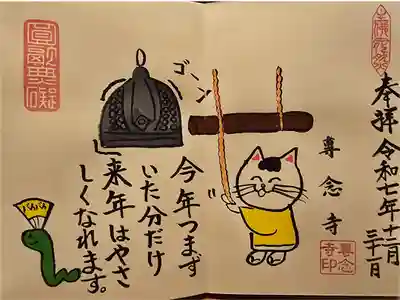 奉拝
令和七年十二月
三十一日
尊念寺
尊念寺印
ゴーン
今年つまず
いた分だけ
来年はやさ
しくなれます。